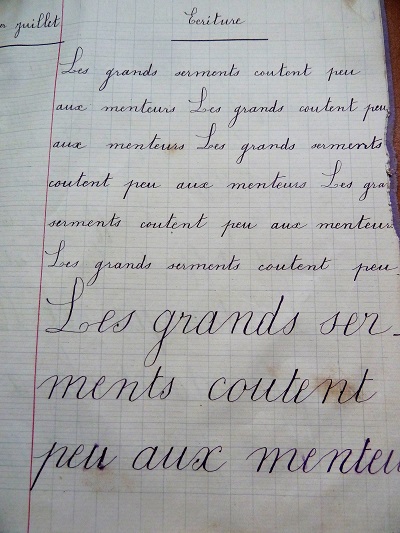 juillet Ecriture
Les grands serments coutent peu
aux menteurs Les grands coutent peu
aux menteurs Les grands serments
coutent peu aux menteurs Les gra
serments coutent peu aux menteur
Les grands serments coutent peu
Les grands ser-
ments coutent
peu aux menteu